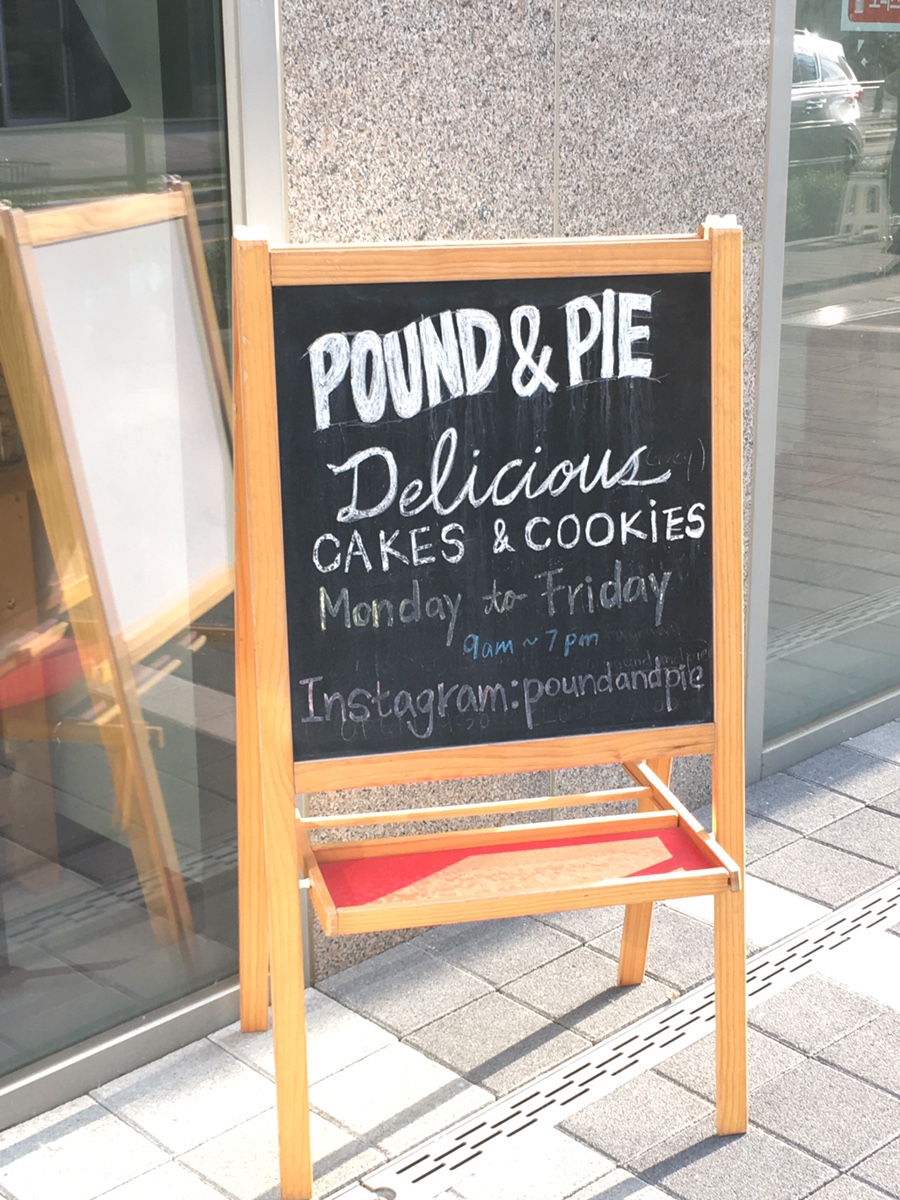 POUND & PIE
Delicious
CAKES & COOKiES
Monday to Friday
9am ~ 7pm
Instagram: poundandpie